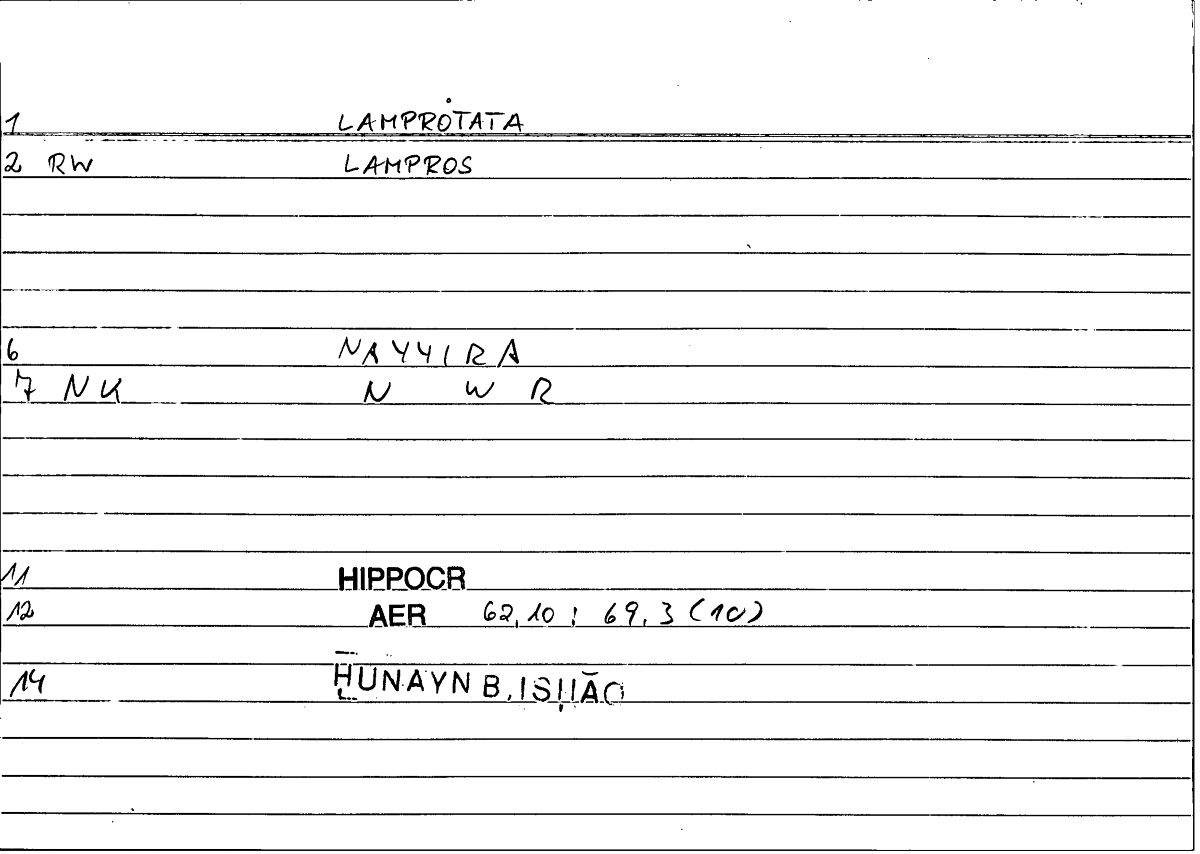 1 LAMPRÓTATA
2 RW LAMPROS
6 NAYYIRA
7 NK N W R
11 HIPPOCR
12 AER 62,10 : 69,3 (10)
14 ḤUNAYN B. ISḤĀQ